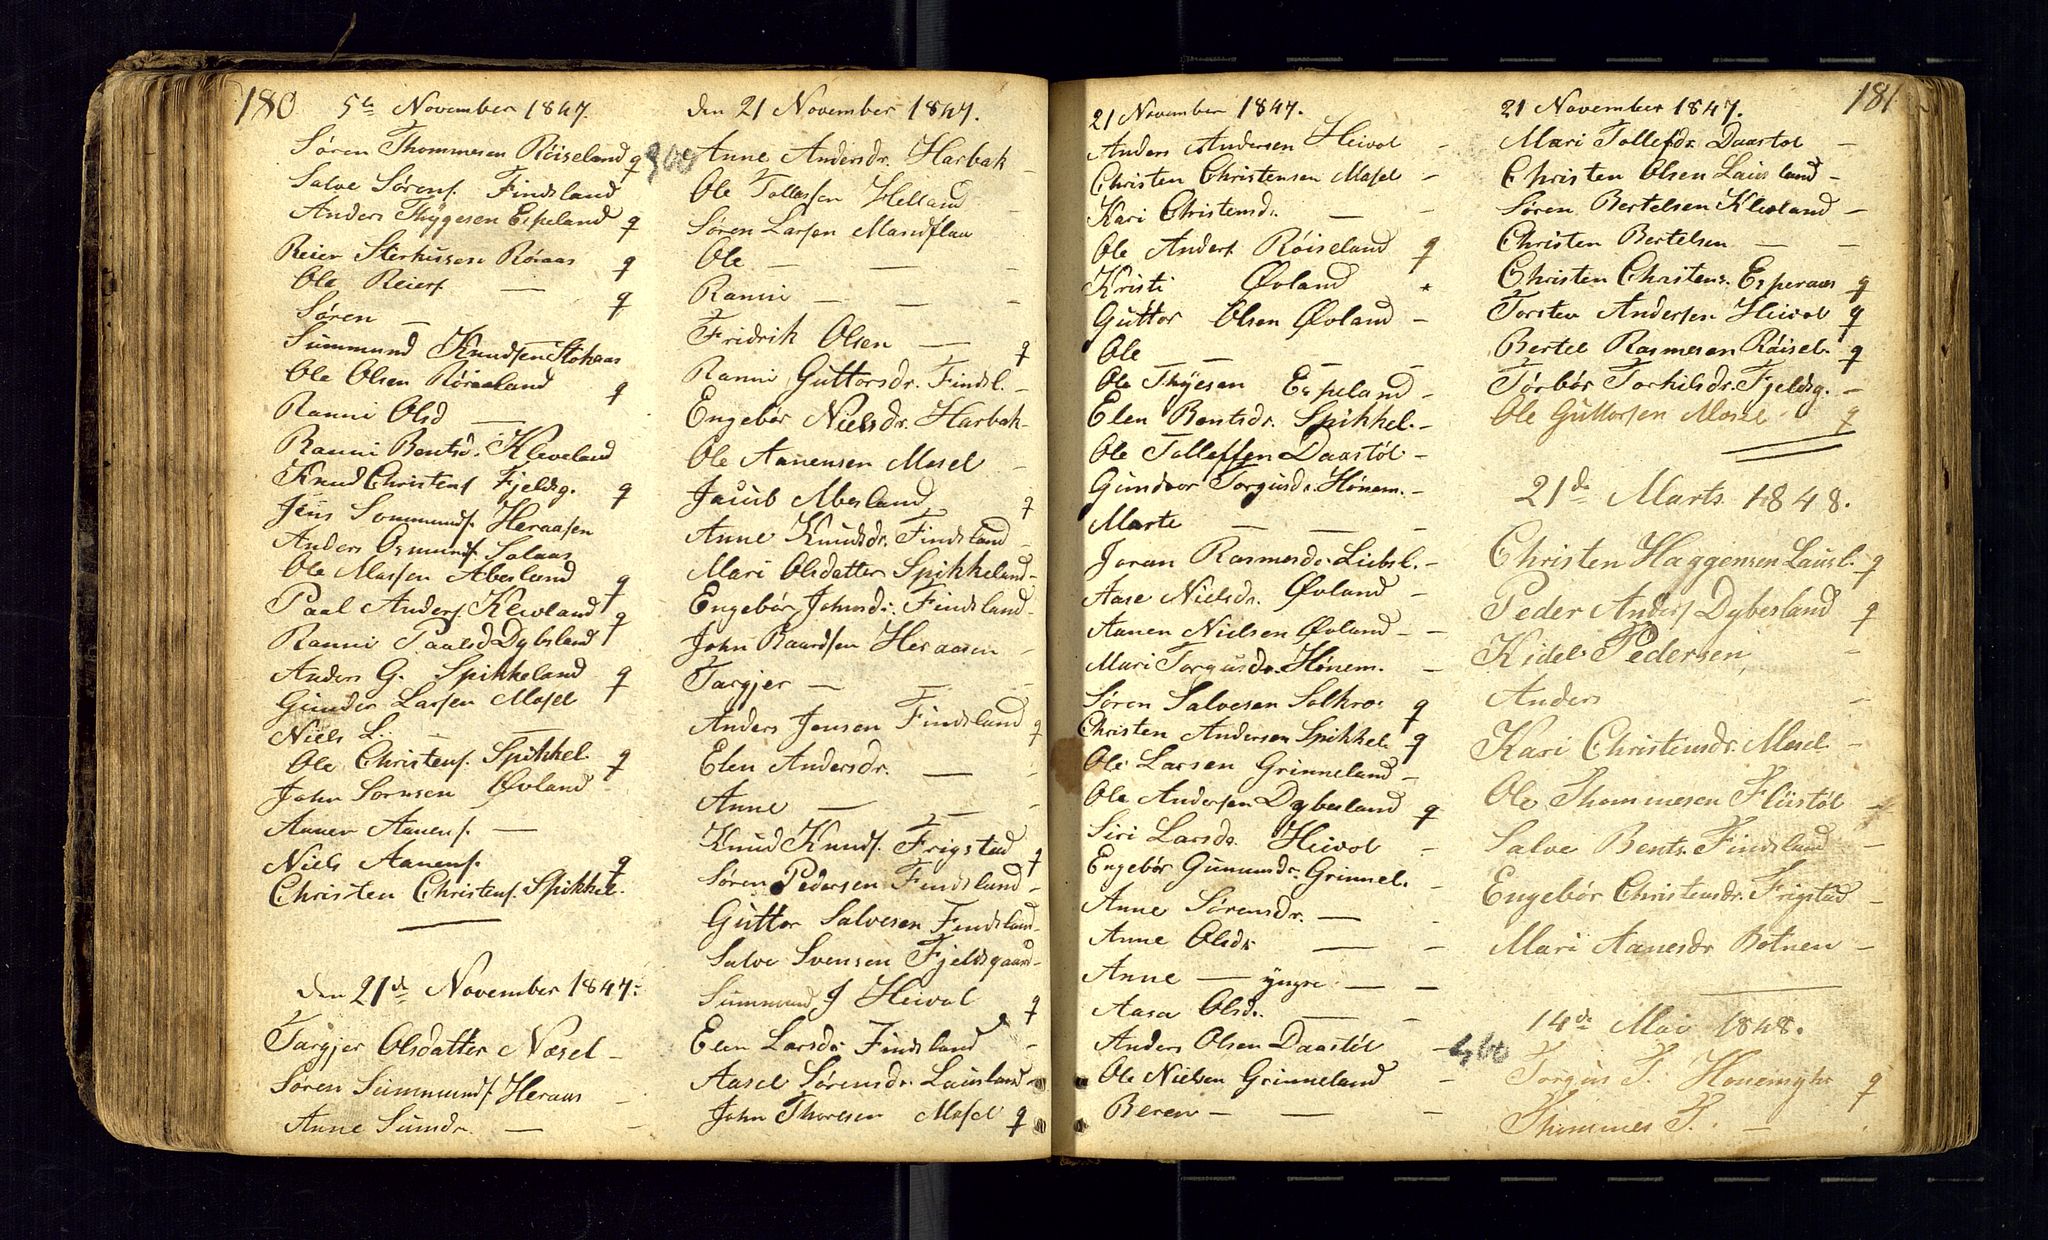 180
5te November 1847.
Søren Thommesen Røiseland q
Salve Sørens. Findsland
Anders Thygesen Espeland q
Reier Sterkussen Røraas q
Ole Reiers. — q
Søren —
Summund Knudsen Stokaas
Ole Olsen Røiseland q
Ranni Olsd —
Ranni Bentsd. Kleveland
Knud Christens Fjeldsg. q
Jens Sommunds. Heraasen
Anders Osmunds. Salaas
Ole Massen Abesland q
Paal Anders Klevland q
Ranni Paalsd Dybesland
Anders G. Spikkeland q
Gunder Larsen Mosel
Niels L. — —
Ole Christens. Spikkel. q
John Sørnsen Øvland
Aanen Aanens. —
Niels Aanens. q
Christen Christens. Spikkel.
den 21de November 1847.
Targjer Olsdatter Næsel —
Søren Summunds. Heraas —
Anne Sumdr. — —
den 21 November 1847.
300 Anne Andersdr. Harbak —
Ole Tollassen Helland
Søren Larsen Mandflaa
Ole — — —
Ranni — — —
Fridrik Olsen — q
Ranni Guttorsdr. Findsl. —
Engebør Nielsdr. Harbak —
Ole Aanensen Mosel —
Jacub Abesland q
Anne Knudsdr. Findsland —
Mari Olsdatter Spikkeland —
Engebør Johnsdr. Findsland —
John Baardsen Heraasen —
Targjer — — —
Anders Jensen Findsland q
Elen Andersdr. — —
Anne — — —
Knud Knuds. Frigstad q
Søren Pedersen Findsland —
Guttor Salvesen Findsland —
Salve Svensen Fjeldsgaard —
Summund J Heivol q
Elen Larsdr Findsland —
Aasel Sørensdr. Lausland —
John Thoresen Mosel q
21 November 1847.
Anders Andersen Heivol —
Christen Christensen Mosel —
Kari Christensdr. — —
Ole Anders Røiseland q
Kristi Øvland
Guttor Olsen Øvland —
Ole — — —
Ole Thyesen Espeland —
Elen Bentsdr. Spikkel. —
Ole Tollefsen Daastøl —
Gundvor Torgusdr. Hønem. —
Marte — — —
Joran Rasmusdr. Liebsl. —
Aase Nielsdr. Øvland —
Aanen Nielsen Øvland — —
Mari Torgusdr. Hønem. —
Søren Salvesen Solkro. q
Christen Andersen Spikkel. q
Ole Larsen Grinneland —
Ole Andersen Dybesland q
Siri Larsdr. Heivol —
Engebør Gunundr. Grinnel. —
Anne Sørensdr. — —
Anne Olsdr. — —
Anne — yngre — —
Aasa Olsdr. — —
Anders Olsen Daastøl —
Ole Nielsen Grinneland —
Beren — — —
181
21 November 1847.
Mari Tollefdr. Daastøl —
Christen Olsen Lausland —
Søren Bertelsen Klevland —
Christen Bertelsen — —
Christen Christens. Esperaas q
Torsten Andersen Heivol q
Bertel Rasmesen Røisel. q
Tørbør Torkilsdr. Fjeldsg. —
Ole Guttorsen Mosel q
21de Marts 1848.
Christen Haggensen Lausl. q
Peder Anders Dybesland q
Kidel Pedersen —
Anders —
Kari Christensdr. Mosel —
Ole Thommesen Fliistøl
Salve Bents. Findsland —
Engebør Christensdr. Frigstad —
Mari Aanesdr Botnen —
14de Mai 1848.
400 Torgus T. Hønemyhr q
Thommes T. —